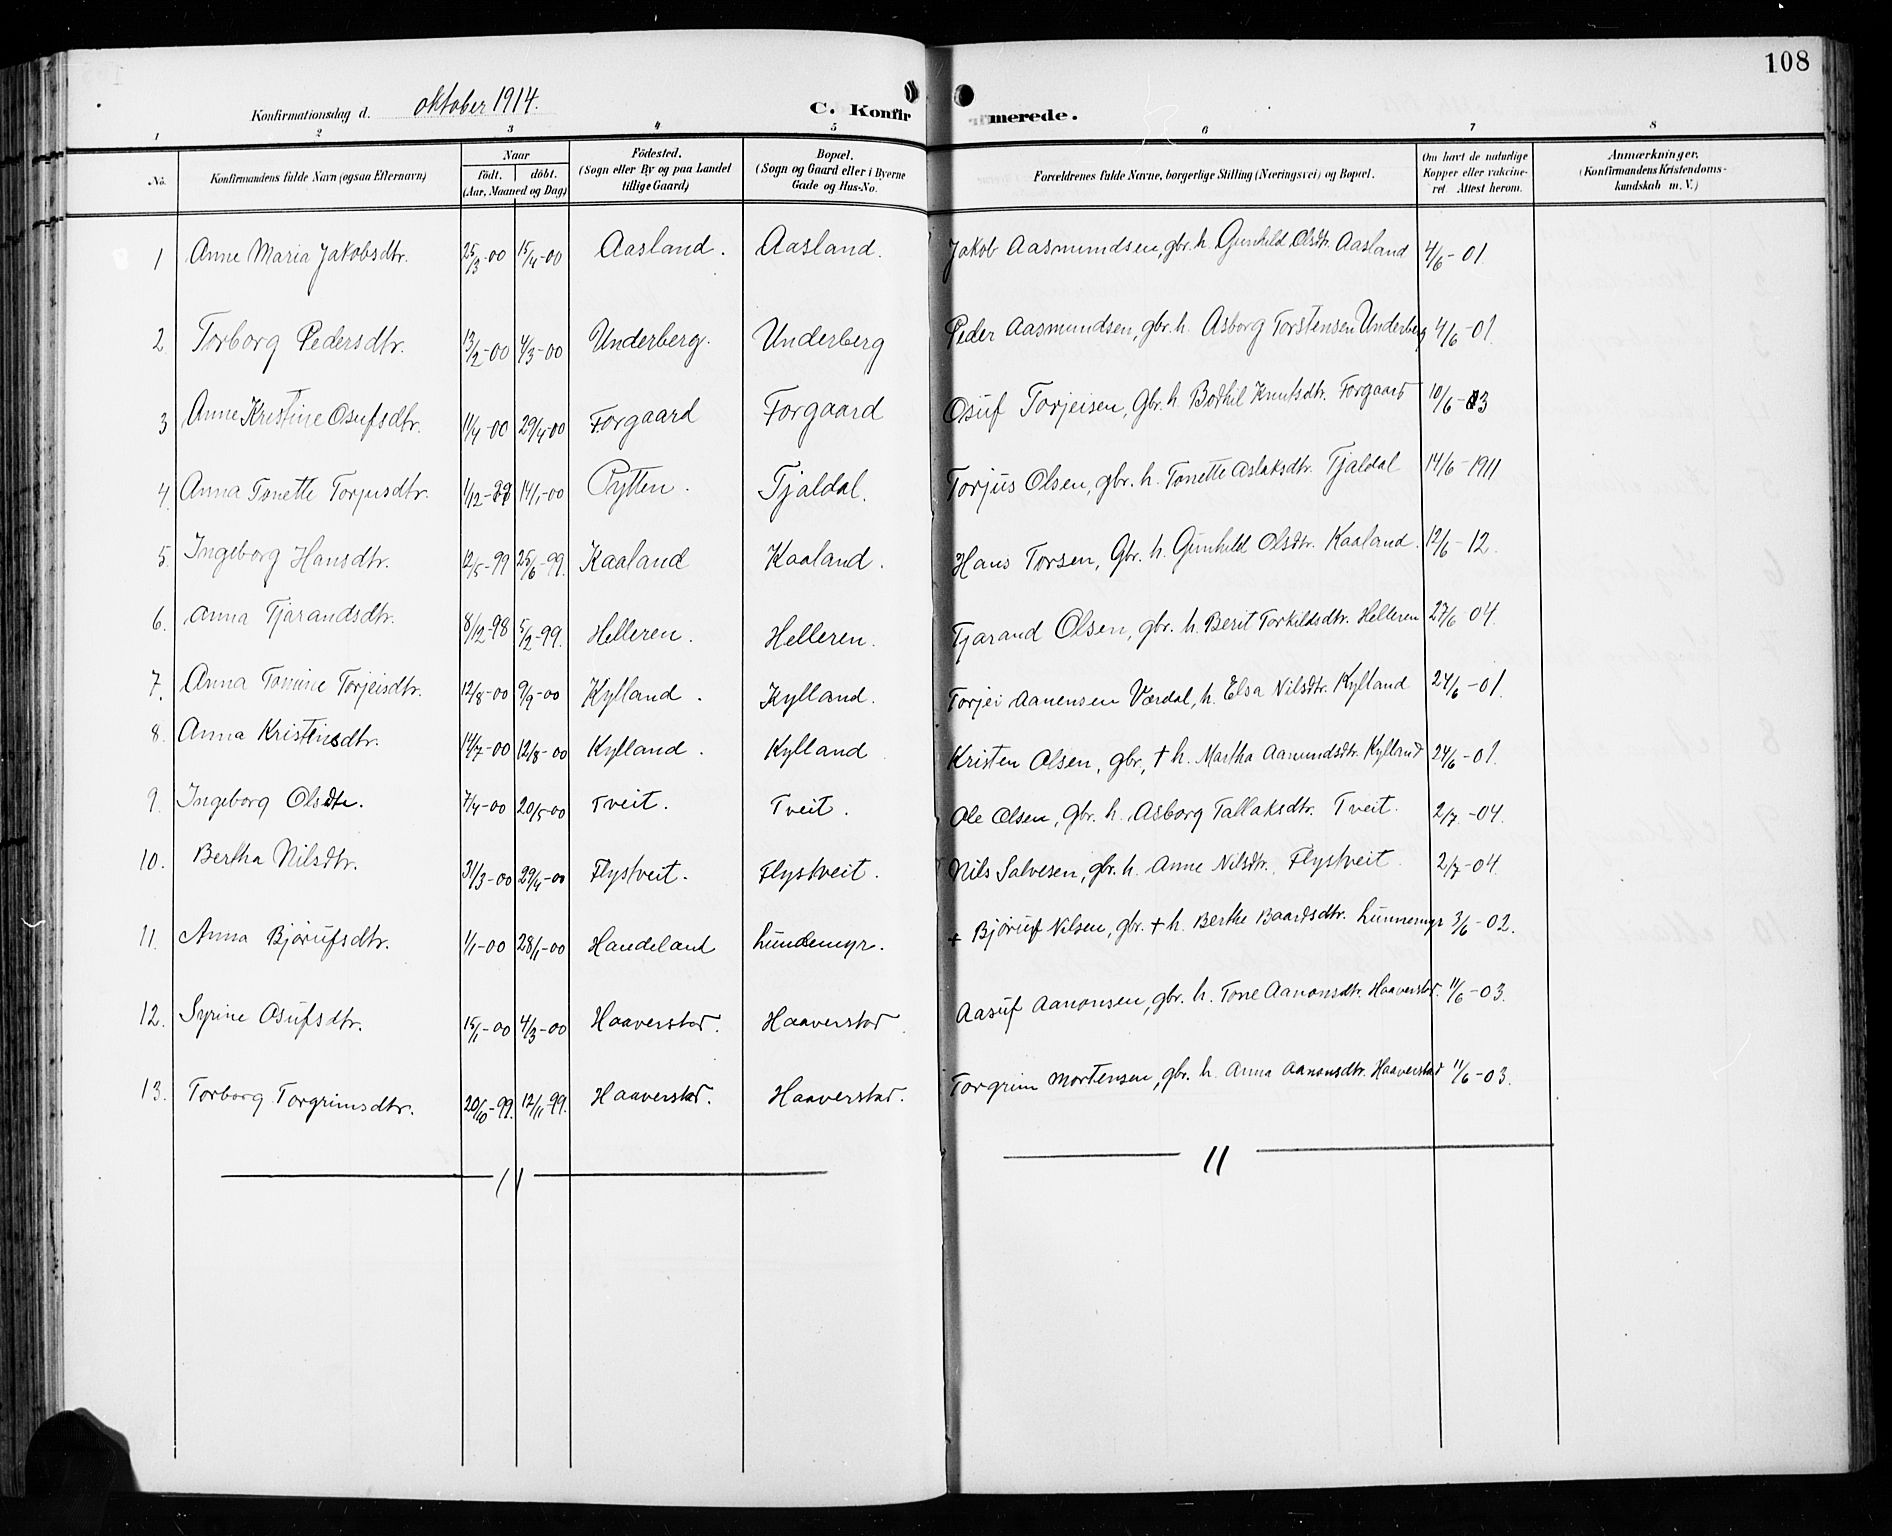 108
Konfirmationsdag d. oktober 1914. C. Konfirmerede.
1 2 3 4 5 6 7 8
No. Konfirmandens fulde Navn (ogsaa Efternavn) Naar födt. döbt. (Aar, Maaned og Dag) Födested. (Sogn eller By og paa Landet tillige Gaard) Bopæl. (Sogn og Gaard eller i Byerne Gade og Hus-No. Forældrenes fulde Navne, borgerlige Stilling (Næringsvei) og Bopæl. Om havt de naturlige Kopper eller vakcineret Attest herom. Anmærkninger. (Konfirmandens Kristendomskundskab m. V.)
1 Anne Maria Jakobsdtr. 25/3-00 15/4-00 Aasland. Aasland. Jakob Aasmundsen, gbr. h. Gunhild Olsdtr. Aasland 4/6-01.
2 Torborg Pedersdtr. 13/2-00 4/3-00 Underberg. Underberg Peder Aasmundsen, gbr. h. Asborg Torstensen Underberg 4/6-01.
3 Anne Kristine Osufsdtr. 11/4-00 29/4-00 Forgaard Forgaard Osuf Torjeisen, Gbr. h. Bodhil Knutsdtr. Forgaard 10/6-03
4. Anna Tonette Torjusdtr. 1/12-99 14/1-00 Rytten. Tjaldal. Torjus Olsen, gbr. h. Tonette Aslaksdtr. Tjaldal 14/6-1911
5. Ingeborg Hansdtr. 12/5-99 25/6-99. Kaaland Kaaland. Hans Torsen, Gbr. h. Gunhild Olsdtr. Kaaland. 12/6-12.
6. Anna Tjarandsdtr. 8/12-98 5/2-99. Helleren. Helleren. Tjarand Olsen, gbr. h. Berit Torkildsdtr. Helleren 27/6-04.
7. Anna Tomine Torjeisdtr. 12/8-00 9/9-00 Kylland. Kylland. Torjei Aanensen Værdal, h. Elsa Nilsdtr. Kylland 24/6-01.
8. Anna Kristensdtr. 14/7-00 12/8-00 Kylland. Kylland Kristen Olsen, gbr., † h. Martha Aamundsdtr. Kylland 24/6-01.
9. Ingeborg Olsdtr. 7/4-00 20/5-00 Tveit. Tveit. Ole Olsen, Gbr. h. Asborg Tallaksdtr. Tveit. 2/7-04.
10. Bertha Nilsdtr. 31/3-00 29/4-00 Flystveit. Flystveit. Nils Salvesen, gbr. h. Anne Nilsdtr. Flystveit. 2/7-04.
11. Anna Bjørufsdtr. 1/1-00 28/1-00 Handeland Lundemyr. † Bjøruf Nilsen, gbr. † h. Berthe Baardsdtr. Lunnemyr 3/6-02.
12. Syrine Osufsdtr. 15/1-00 4/3-00 Haaverstad. Haaverstad. Aasuf Aanonsen, gbr. h. Tone Aanonsdtr. Haaverstad. 11/6-03.
13. Torborg Torgrimsdtr. 20/10-99. 12/11-99. Haaverstad. Haaverstad. Torgrim Mortensen, gbr. h. Anna Aanonsdtr. Haaverstad 11/6-03.